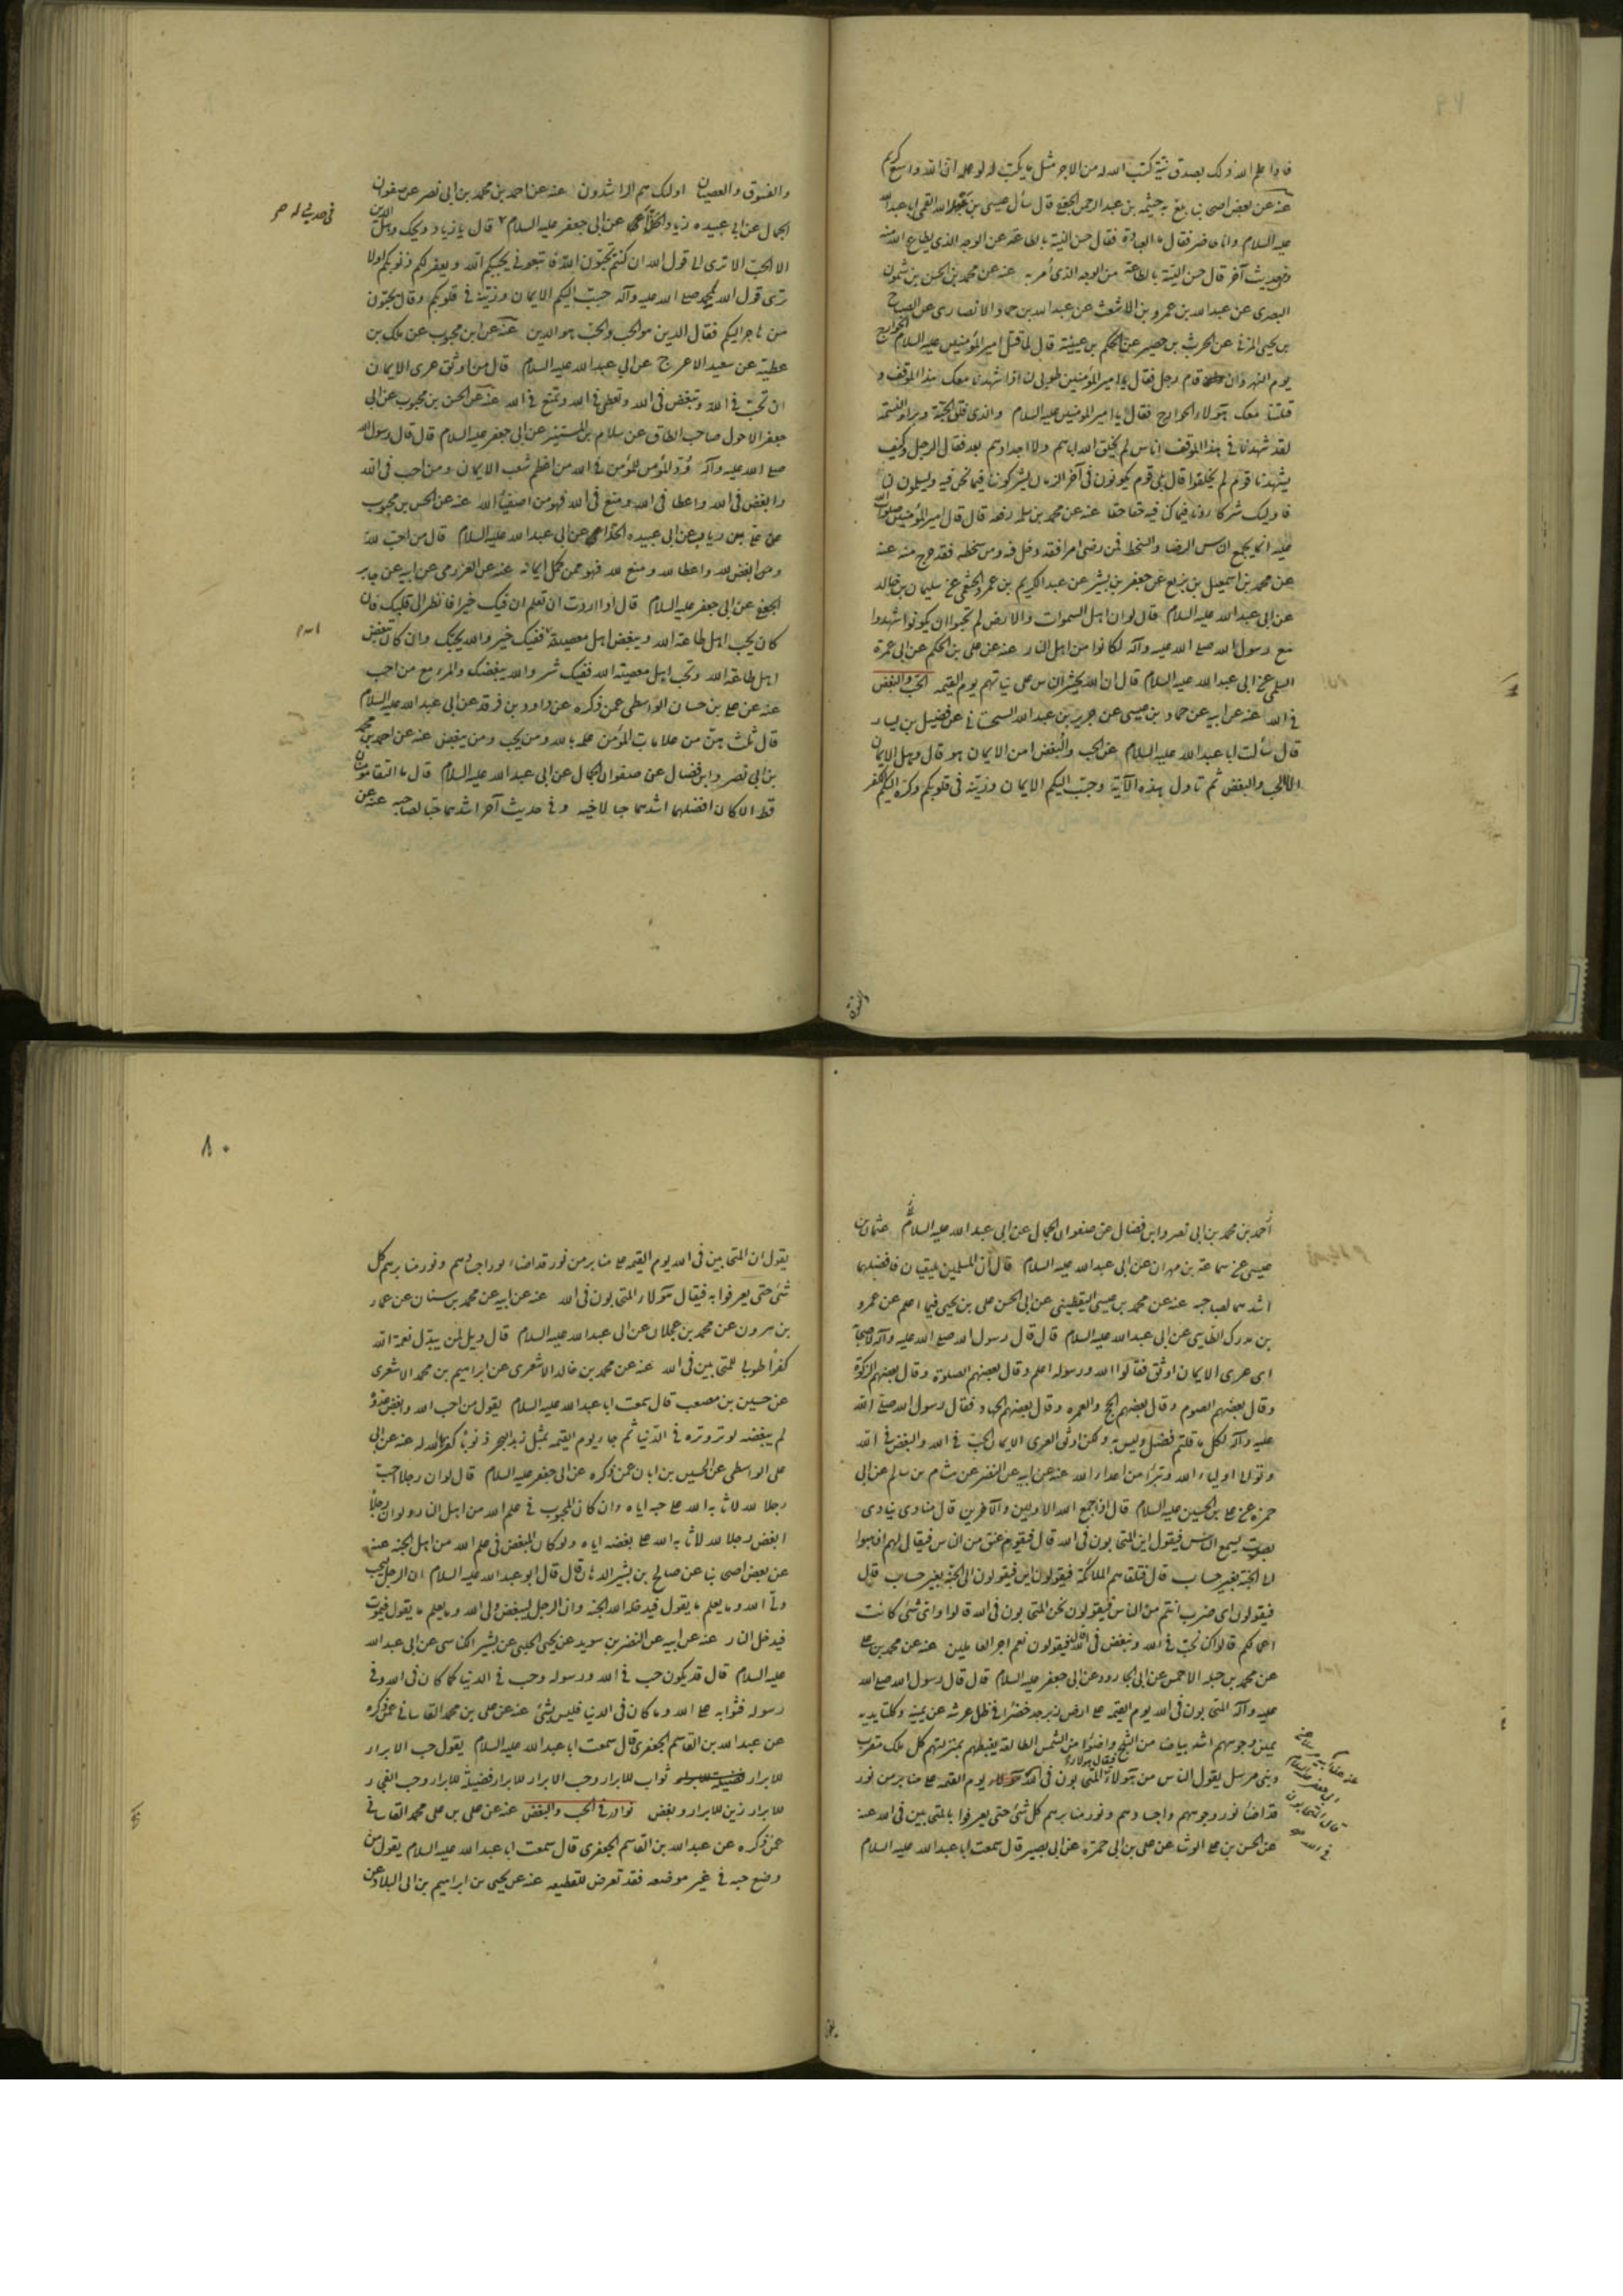 فاذا علم الله ذلك بصدق نية كتب الله له من الاجر مثل ما يكتب له لو عمله ان الله واسع كريم
عنه عن بعض اصحابنا بلغ به خيثمه بن عبد الرحمن الجعفى قال سأل عيسى بن عبد الله القمى ابا عبد الله
عليه السلام وانا حاضر فقال ما العبادة فقال حسن النية بالطاعة من الوجه الذى يطاع الله منه
وفى حديث آخر قال حسن النية بالطاعة من الوجه الذى أمر به عنه عن محمد بن الحسن بن شمون
البصرى عن عبد الله بن عمرو بن الاشعث عن عبد الله بن حماد الانصارى عن الصباح
بن يحيى المزنى عن الحرث بن حصيره عن الحكم بن عيينة قال لما قتل امير المؤمنين عليه السلام الخوارج
يوم النهروان قام رجل فقال يا امير المؤمنين طوبى لنا اذا شهدنا معك هذا الموقف و
قتلنا معك هؤلاء الخوارج فقال يا امير المومنين عليه السلام والذى فلق الحبة وبرأ النسمة
لقد شهدنا فى هذا الموقف اناس لم يخلق الله اباءهم ولا اجدادهم بعد فقال الرجل وكيف
يشهدنا قوم لم يخلقوا قال بلى قوم يكونون فى آخر الزمان يشركوننا فيما نحن فيه ويسلمون لنا
فاوليك شركاؤنا فيما كنا فيه حقا حقا عنه عن محمد بن سلمه رفعه قال قال امير المؤمنين صلوات الله
عليه انما يجمع الناس الرضا والسخط فمن رضى امرا فقد دخل فيه ومن سخطه فقد خرج منه عنه
عن محمد بن اسمعيل بن بزيع عن جعفر بن بشير عن عبد الكريم بن عمرو الخثعمى عن سليمان بن خالد
عن ابى عبد الله عليه السلام قال لو ان اهل السموات والارض لم يحبوا ان يكونوا شهدوا
مع رسول الله صلى الله عليه وآله لكانوا من اهل النار عنه عن على بن الحكم عن ابى عمرة
السلمى عن ابى عبد الله عليه السلام قال ان الله يحشر الناس على نياتهم يوم القيمه الحب والبغض
فى الله عنه عن ابيه عن حماد بن عيسى عن حريز بن عبد الله السجستانى عن فضيل بن يسار
قال سألت ابا عبد الله عليه السلام عن الحب والبغض امن الايمان هو قال وهل الايمان
الا الحب والبغض ثم تاول هذه الآية وحبب اليكم الايمان وزينه فى قلوبكم وكره اليكم الكفر
والفسوق
والفسوق والعصيان اولئك هم الراشدون عنه عن احمد بن محمد بن ابى نصر عن صفوان
الجمال عن ابى عبيده زياد الحذاء عن ابى جعفر عليه السلام قال يا زياد ويحك وهل الدين
الا الحب الا ترى الى قول الله ان كنتم تحبون الله فاتبعونى يحببكم الله ويغفر لكم ذنوبكم اولا
ترى قول الله لمحمد صلى الله عليه وآله حبب اليكم الايمان وزينه فى قلوبكم وقال يحبون
من هاجر اليهم فقال الدين هو الحب والحب هو الدين عنه عن ابن محبوب عن ملك بن
عطية عن سعيد الاعرج عن ابى عبد الله عليه السلام قال من اوثق عرى الايمان
ان تحب فى الله وتبغض فى الله وتعطى فى الله وتمنع فى الله عنه عن الحسن بن محبوب عن ابى
جعفر الاحول صاحب الطاق عن سلام بن المستنير عن ابى جعفر عليه السلام قال قال رسول الله
صلى الله عليه وآله ود المؤمن للمؤمن فى الله من اعظم شعب الايمان ومن احب فى الله
وابغض فى الله واعطا فى الله ومنع فى الله فهو من اصفياء الله عنه عن الحسن بن محبوب
عن على بن رياب عن ابى عبيده الحذاء عن ابى عبد الله عليه السلام قال من احب لله
ومن ابغض لله واعطا لله ومنع لله فهو ممن كمل ايمانه عنه عن العزرمى عن ابيه عن جابر
الجعفى عن ابى جعفر عليه السلام قال اذا اردت ان تعلم ان فيك خيرا فانظر الى قلبك فان
كان يحب اهل طاعة الله ويبغض اهل معصيته ففيك خير والله يحبك وان كان يبغض
اهل طاعة الله ويحب اهل معصية الله ففيك شر والله يبغضك والمرء مع من احب
عنه عن على بن حسان الواسطى عمن ذكره عن داود بن فرقد عن ابى عبد الله عليه السلام
قال ثلث هن من علامات المؤمن علمه بالله ومن يحب ومن يبغض عنه عن احمد بن محمد
بن ابى نصر وابن فضال عن صفوان الجمال عن ابى عبد الله عليه السلام قال ما التقا مؤمنان
قط الا كان افضلهما اشدهما حبا لاخيه وفى حديث آخر اشدهما حبا لصاحبه عنه عن
احمد بن محمد بن ابى نصر وابن فضال عن صفوان الجمال عن ابى عبد الله عليه السلام عثمان بن
عيسى عن سماعة بن مهران عن ابى عبد الله عليه السلام قال ان المسلمين يلتقيان فافضلهما
اشدهما لصاحبه عنه عن محمد بن عيسى اليقطينى عن ابى الحسن على بن يحيى فيما اعلم عن عمرو
بن مدرك الطايى عن ابى عبد الله عليه السلام قال قال رسول الله صلى الله عليه وآله لاصحابه
اى عرى الايمان اوثق فقالوا الله ورسوله اعلم وقال بعضهم الصلوة وقال بعضهم الزكوة
وقال بعضهم الصوم وقال بعضهم الحج والعمره وقال بعضهم الجهاد فقال رسول الله صلى الله
عليه وآله لكل ما قلتم فضل وليس به ولكن اوثق العرى الايمان الحب فى الله والبغض فى الله
وتولى اولياء الله وتبرأ من اعداء الله عنه عن ابيه عن النضر عن هشام بن سالم عن ابى
حمزه عن على بن الحسين عليه السلام قال اذا جمع الله الاولين والآخرين قال منادى ينادى
بصوت يسمع الناس فيقول اين المتحابون فى الله قال فيقوم عنق من الناس فيقال لهم اذهبوا
الى الجنة بغير حساب قال فتلقاهم الملائكة فيقولون اين فيقولون الى الجنة بغير حساب قال
فيقولون اى ضرب انتم من الناس فيقولون نحن المتحابون فى الله قالوا واى شئ كانت
اعمالكم قالوا كنا نحب فى الله ونبغض فى الله فيقولون نعم اجر العاملين عنه عن محمد بن على
عن محمد بن جبله الاحمسى عن ابى الجارود عن ابى جعفر عليه السلام قال قال رسول الله صلى الله
عليه وآله المتحابون فى الله يوم القيمه على ارض زبرجد خضراء فى ظل عرشه عن يمينه وكلتا يديه
يمين وجوههم اشد بياضا من الثلج واضوا من الشمس الطالعة يغبطهم بمنزلتهم كل ملك مقرب
ونبى مرسل يقول الناس من هؤلاء فيقال هولاء المتحابون فى الله يوم القيمه على منابر من نور
قد اضاء نور وجوههم واجسادهم ونور منابرهم كل شئ حتى يعرفوا بالمتحابين فى الله عنه
عن الحسن بن على الوشا عن على بن ابى حمزة عن ابى بصير قال سمعت ابا عبد الله عليه السلام
يقول
٨٠
يقول ان المتحابين فى الله يوم القيمه على منابر من نور قد اضاء نور اجسادهم ونور منابرهم كل
شئ حتى يعرفوا به فيقال هؤلاء المتحابون فى الله عنه عن ابيه عن محمد بن سنان عن عمار
بن مرون عن محمد بن عجلان عن ابى عبد الله عليه السلام قال ويل لمن يبدل نعمة الله
كفرا طوبى للمتحابين فى الله عنه عن محمد بن خالد الاشعرى عن ابراهيم بن محمد الاشعرى
عن حسين بن مصعب قال سمعت ابا عبد الله عليه السلام يقول من احب الله وابغض عدوه
لم يبغضه لوتر وتره فى الدنيا ثم جاء يوم القيمه بمثل زبد البحر ذنوبا كفرها الله له عنه عن ابى
على الواسطى عن الحسين بن ابان عمن ذكره عن ابى جعفر عليه السلام قال لو ان رجلا احب
رجلا لله لاثابه الله على حبه اياه وان كان المحبوب فى علم الله من اهل النار ولو ان رجلا
ابغض رجلا لله لاثابه الله على بغضه اياه ولو كان المبغض فى علم الله من اهل الجنه عنه
عن بعض اصحابنا عن صالح بن بشير الدهان قال قال ابو عبد الله عليه السلام ان الرجل ليحب
ولى الله وما يعلم ما يقول فيدخله الله الجنه وان الرجل ليبغض ولى الله وما يعلم ما يقول فيموت
فيدخل النار عنه عن ابيه عن النضر بن سويد عن يحيى الحلبى عن بشير الكناسى عن ابى عبد الله
عليه السلام قال قد يكون حب فى الله ورسوله وحب فى الدنيا فما كان فى الله وفى
رسوله فثوابه على الله وما كان فى الدنيا فليس بشئ عنه عن على بن محمد القاسانى عمن ذكره
عن عبد الله بن القاسم الجعفرى قال سمعت ابا عبد الله عليه السلام يقول حب الابرار
للابرار ثواب للابرار وحب الابرار للابرار فضيلة للابرار وحب الفجار
للابرار زين للابرار وبغض نوادر فى الحب والبغض عنه عن على بن محمد القاسانى
عمن ذكره عن عبد الله بن القاسم الجعفرى قال سمعت ابا عبد الله عليه السلام يقول من
وضع حبه فى غير موضعه فقد تعرض للقطيعه عنه عن يحيى بن ابراهيم بن ابى البلاد عن